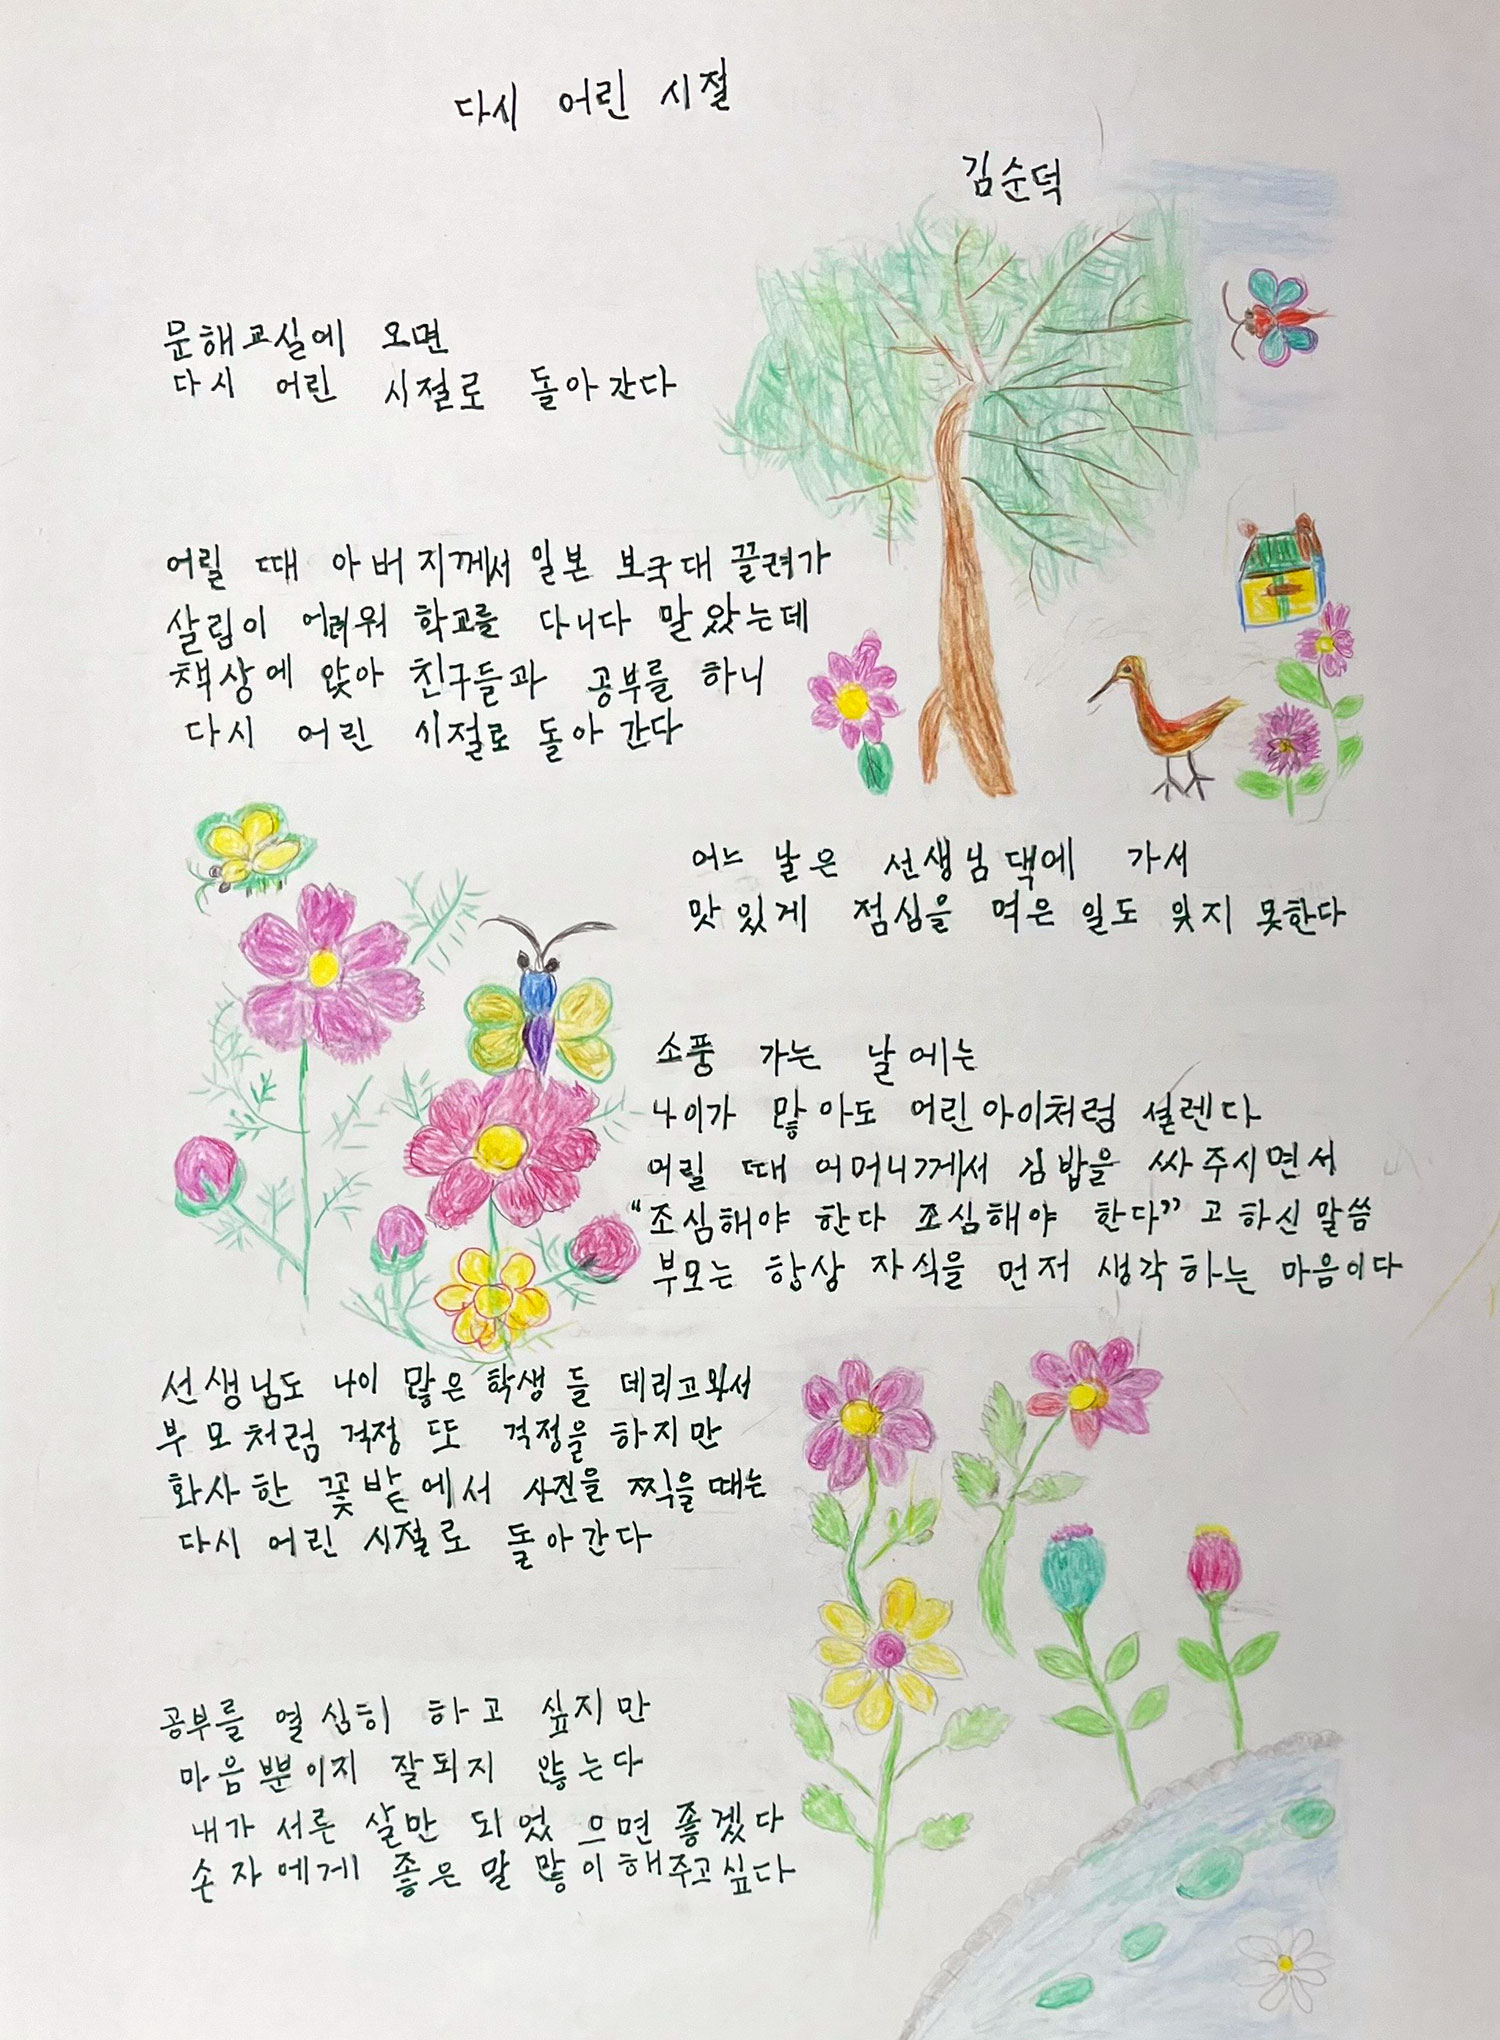 다시 어린 시절
김순덕
문해교실에 오면
다시 어린 시절로 돌아간다
어릴 때 아버지께서 일본 보국대 끌려가
살림이 어려워 학교를 다니다 말았는데
책상에 앉아 친구들과 공부를 하니
다시 어린 시절로 돌아 간다
어느 날은 선생님댁에 가서
맛있게 점심을 먹은 일도 잊지 못한다
소풍 가는 날에는
나이가 많아도 어린아이처럼 설렌다
어릴 때 어머니께서 김밥을 싸주시면서
"조심해야 한다 조심해야 한다"고 하신 말씀
부모는 항상 자식을 먼저 생각하는 마음이다
선생님도 나이 많은 학생들 데리고와서
부모처럼 걱정 또 걱정을 하지만
화사한 꽃밭에서 사진을 찍을때는
다시 어린 시절로 돌아간다
공부를 열심히 하고 싶지만
마음뿐이지 잘되지 않는다
내가 서른 살만 되었으면 좋겠다
손자에게 좋은 말 많이해주고싶다